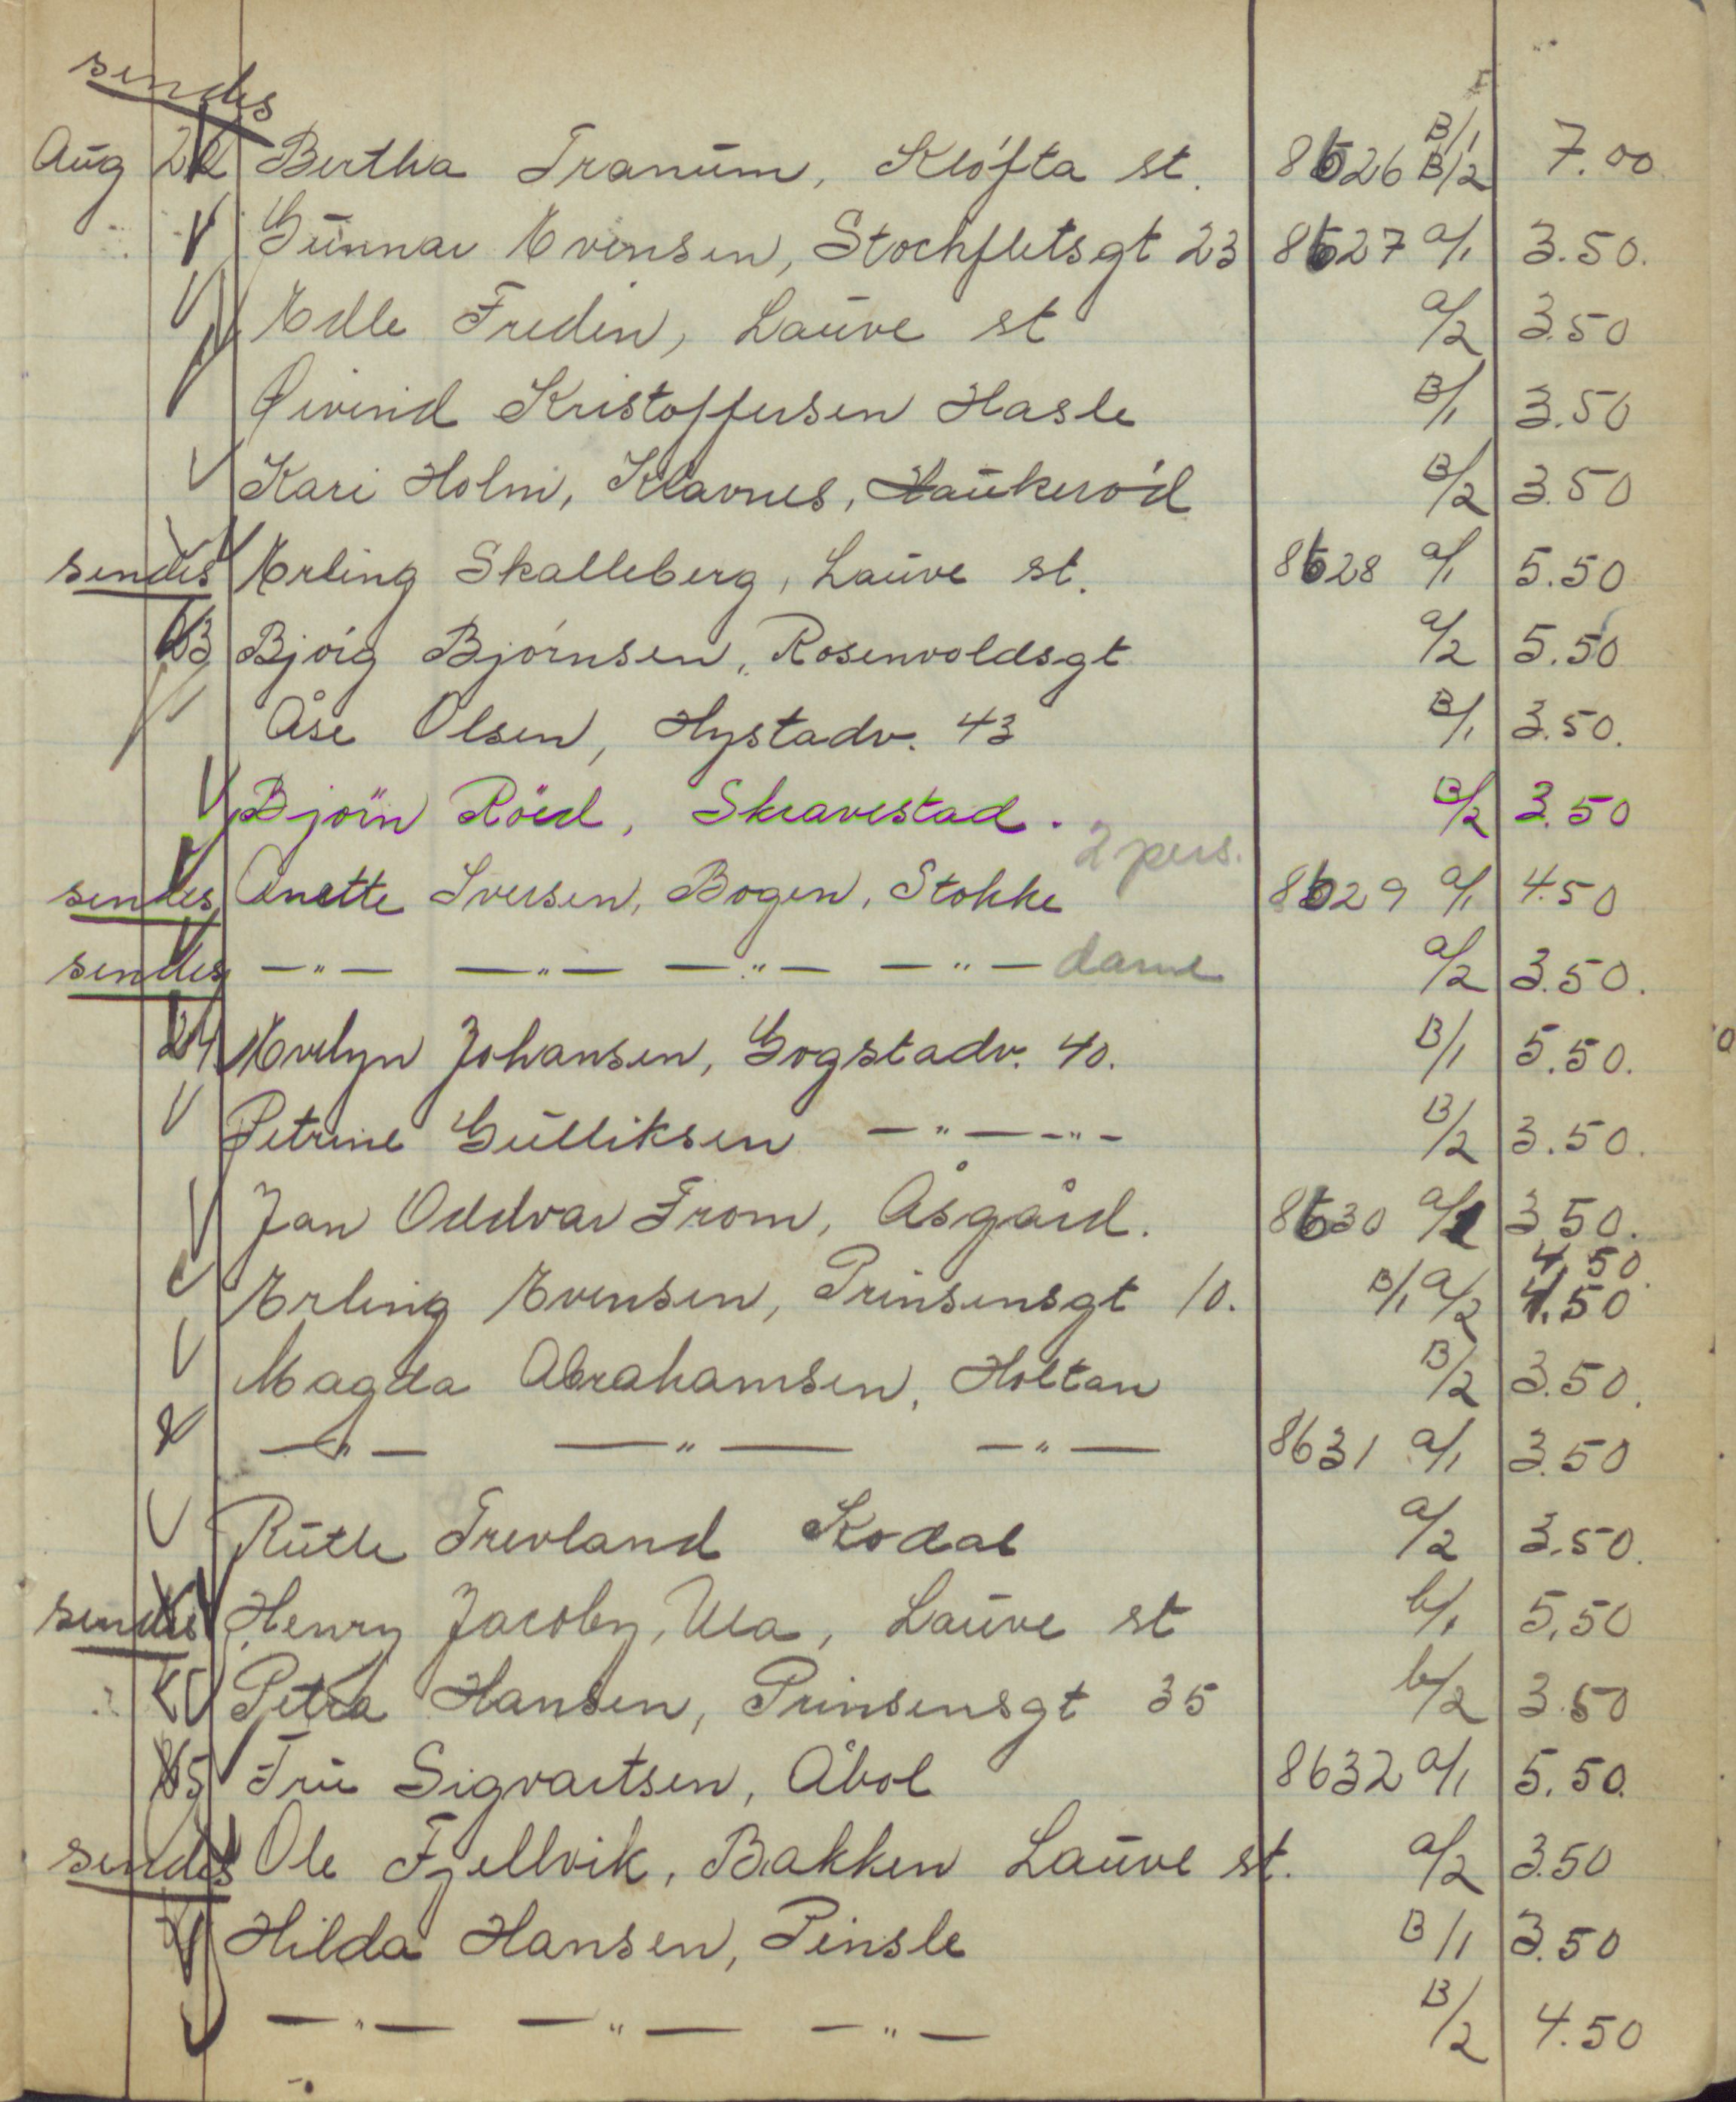 sendes
Aug 22 Bertha Tranum, Kløfta st. 8626 B/1 B/2 7.00
Gunnar Evensen, Stockfletsgt 23 8627 a/1 3.50.
Edle Fredin, Lauve st a/2 3.50
Øivind Kristoffersen Hasle B/1 3.50
Kari Holm, Klavnes, Haukerød B/2 3.50
sendes Erling Skalleberg, Lauve st. 8628 a/1 5.50
23 Bjørg Bjørnsen, Rosenvoldsgt a/2 5.50
Åse Olsen, Hystadv. 43 B/1 3.50.
Bjørn Röed, Skravestad. B/2 3.50
2 pers.
sendes Anette Iversen, Bogen, Stokke 8629 a/1 4.50
sendes —"— —"— —"— —"— dame a/2 3.50.
24 Evelyn Johansen, Gogstadv. 40. B/1 5.50.
Petrine Gulliksen —"—"— B/2 3.50.
Jan Oddvar From, Åsgård. 8630 a/1 3.50.
4.50
Erling Evensen, Prinsensgt 10. B/1 a/2 4.50
Magda Abrahamsen, Holtan B/2 3.50.
—"— —"— —"— 8631 a/1 3.50
Ruth Trevland Kodal a/2 3.50.
sendes Henry Jacoby, Ula, Lauve st b/1 5,50
Petra Hansen, Prinsensgt 35 b/2 3.50
25 Fru Sigvartsen, Åbol 8632 a/1 5.50.
sendes Ole Fjellvik, Bakken Lauve st. a/2 3.50
Hilda Hansen, Pinsle B/1 3.50
—"— —"— —"— B/2 4.50